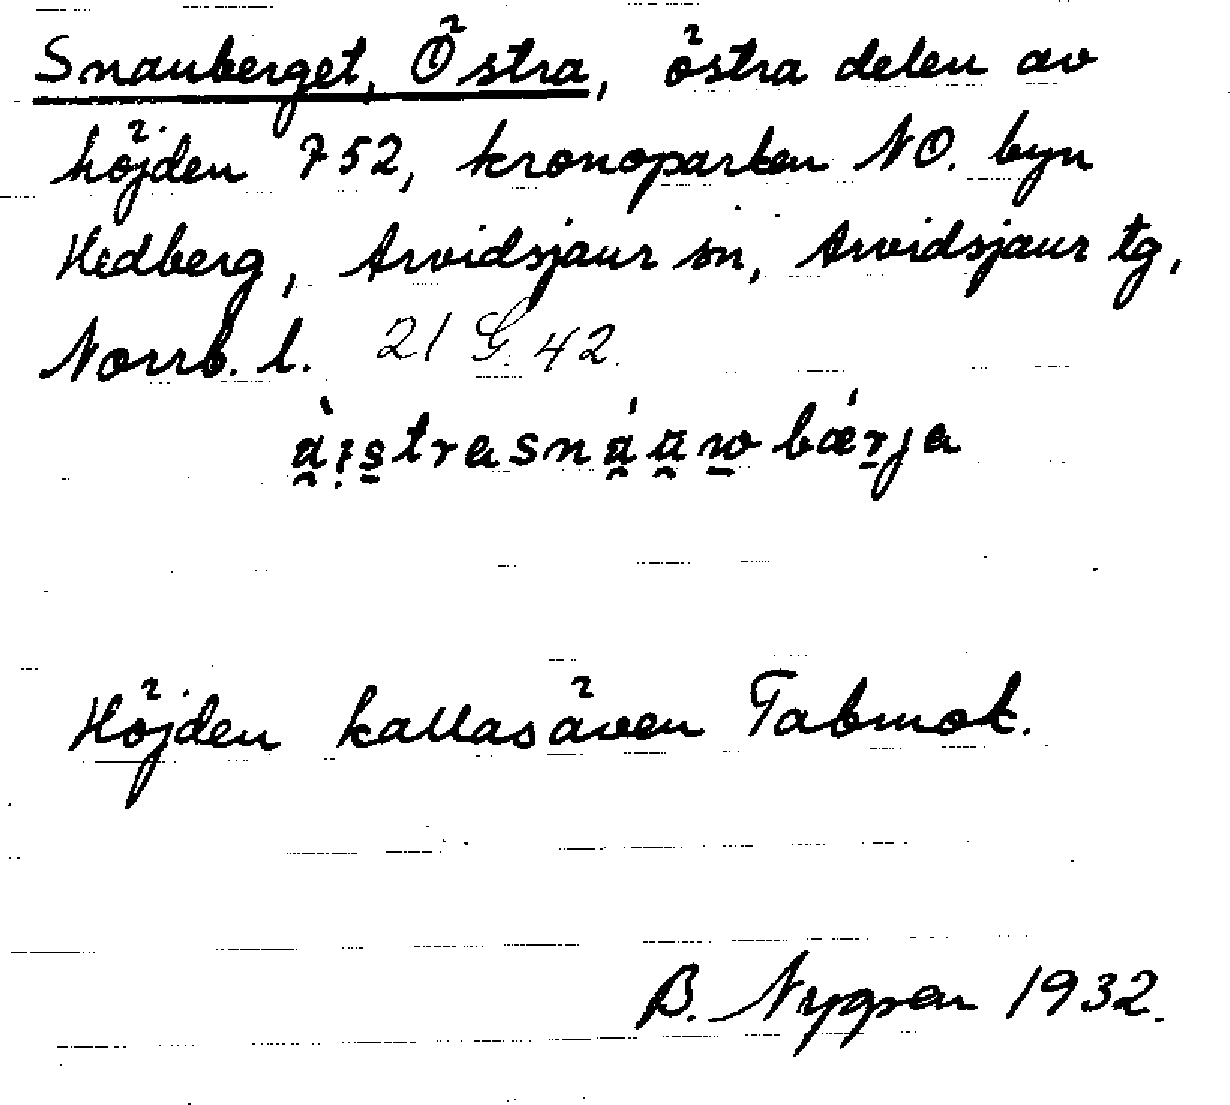 Snauberget, Östra, östra delen av
höjden 752, kronoparken NO. byn
Hedberg, Arvidsjaur sn, Arvidsjaur tg,
Norrb. l. 21 G. 42.
Höjden kallas även Tabmok.
B. Nygren 1932.